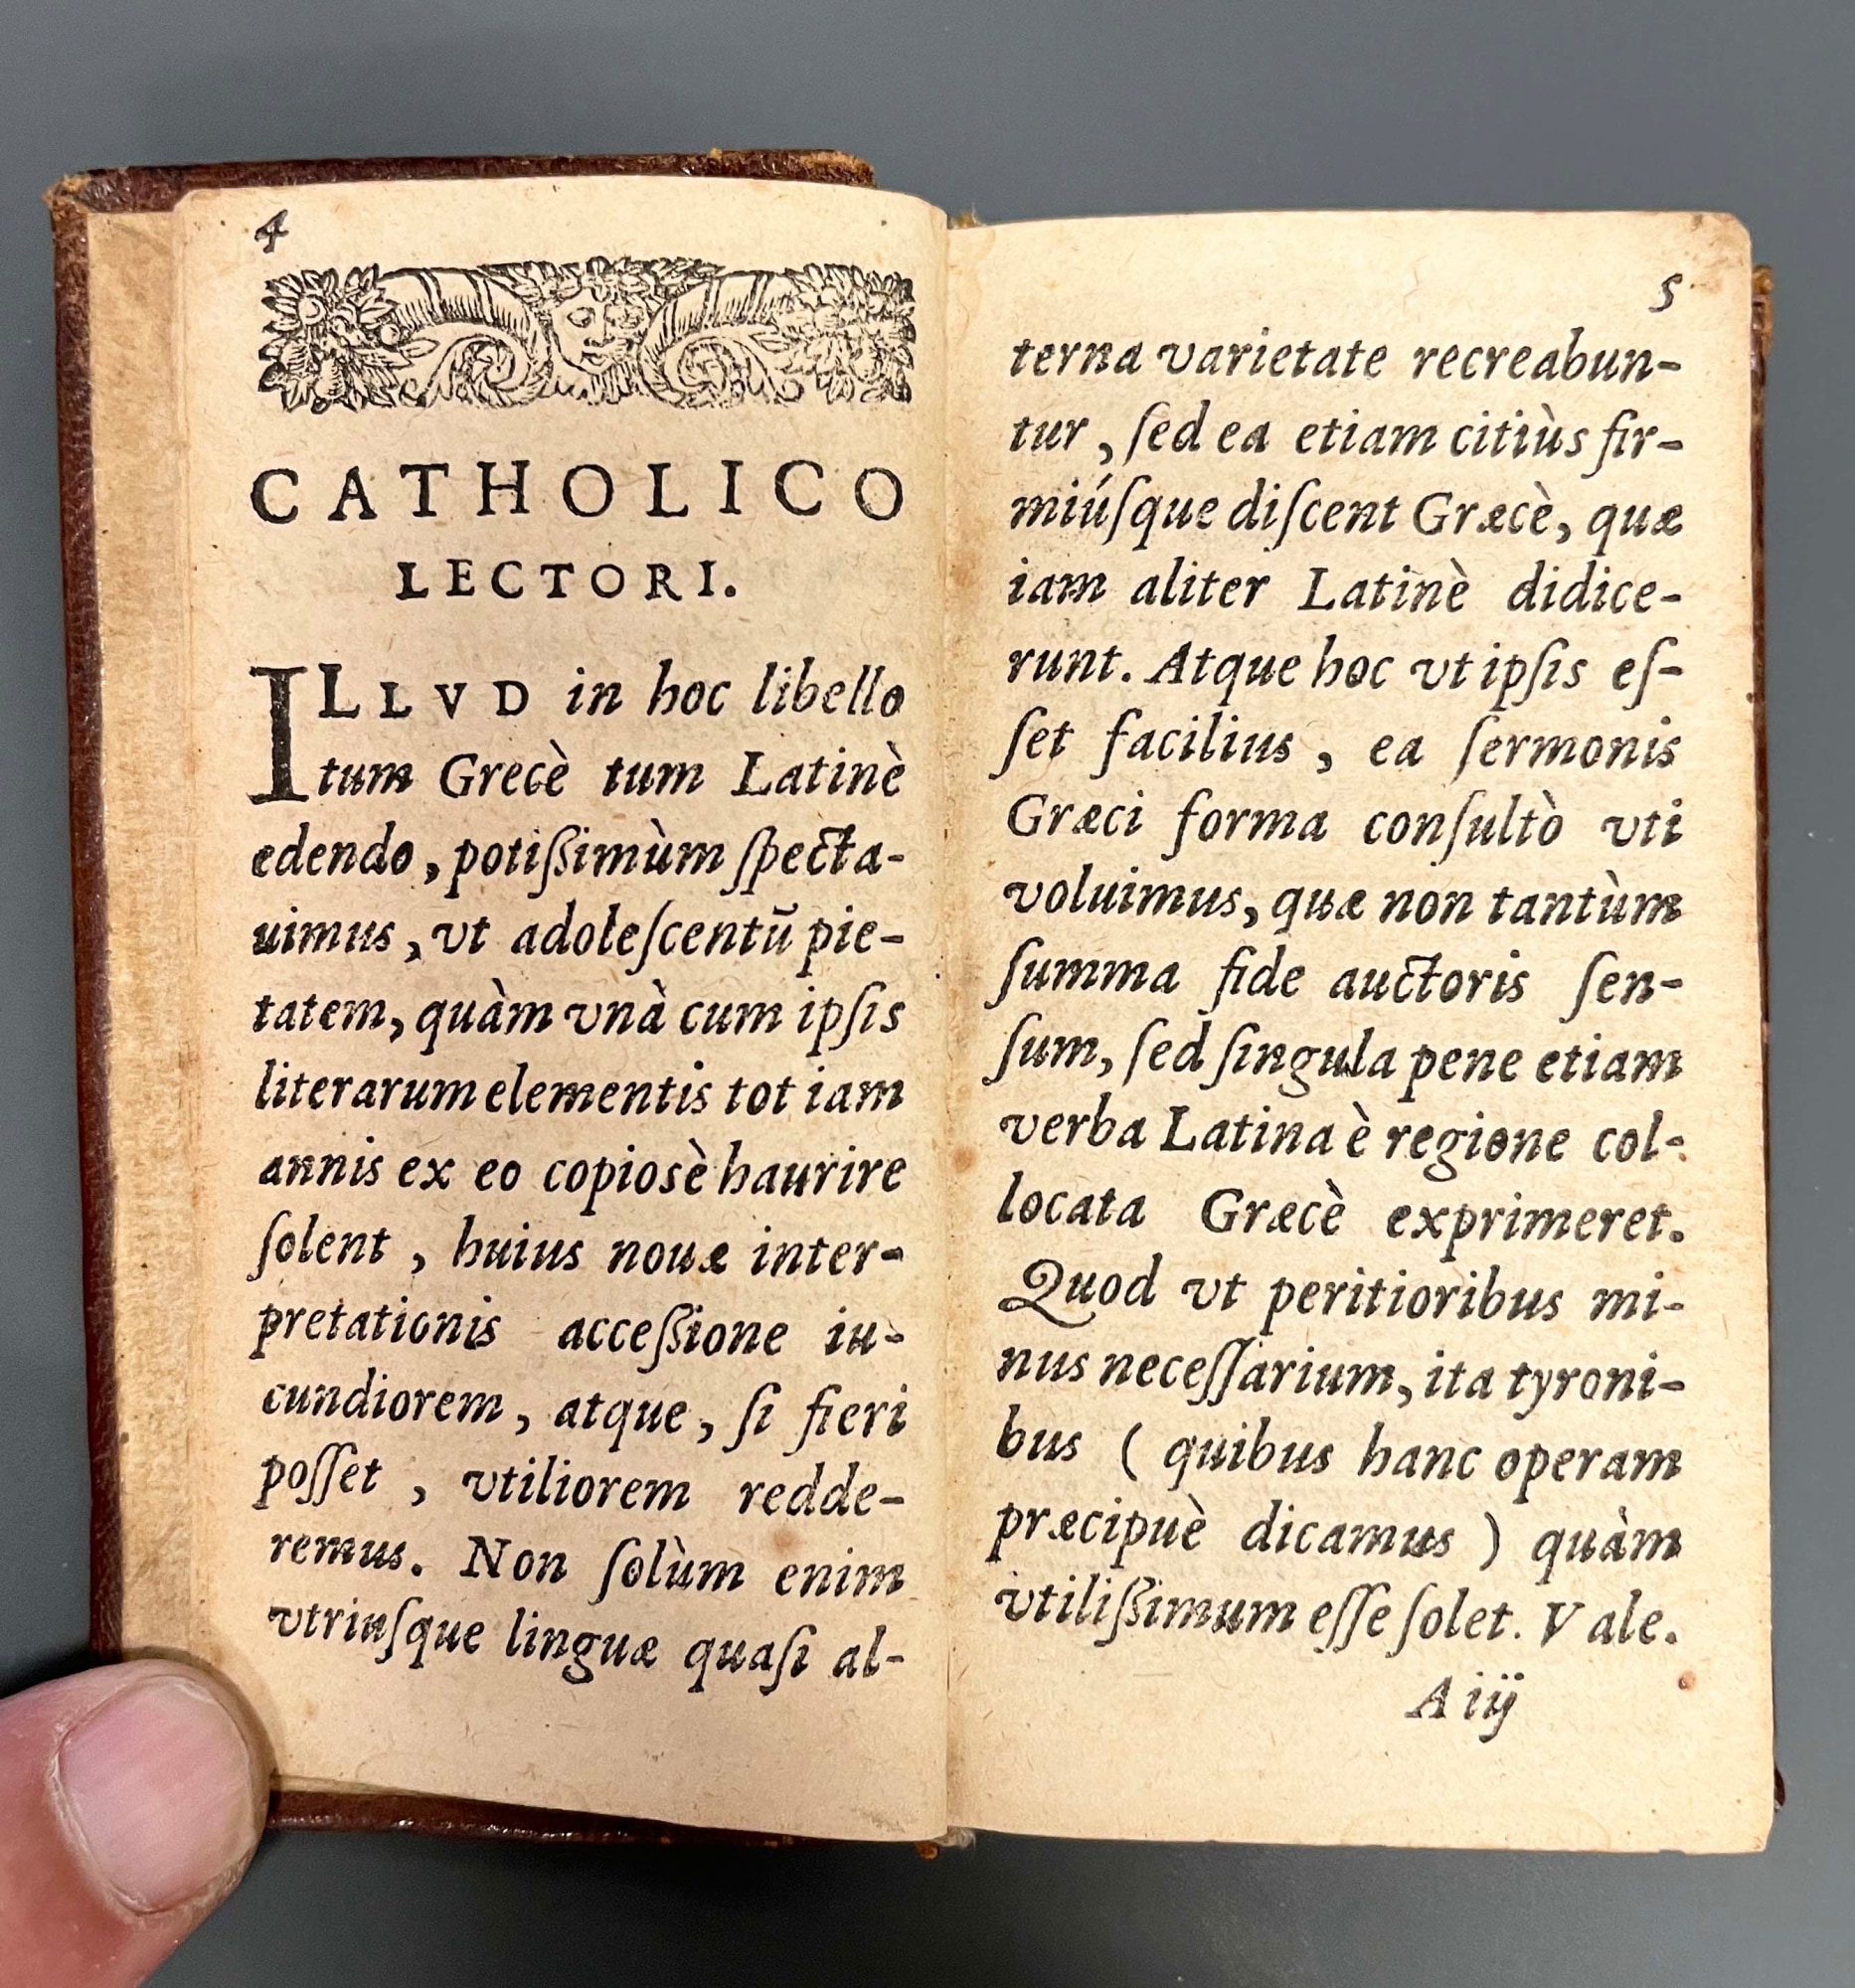 4
CATHOLICO
LECTORI.
ILLVD in hoc libello
tum Grecè tum Latinè
edendo, potißimùm ſpecta-
uimus, vt adoleſcentū pie-
tatem, quàm vnà cum ipſis
literarum elementis tot iam
annis ex eo copiosè haurire
ſolent, huius nouæ inter-
pretationis acceßione iu-
cundiorem, atque, ſi fieri
poſſet, vtiliorem redde-
remus. Non ſolùm enim
vtriuſque linguæ quaſi al-
5
terna varietate recreabun-
tur, ſed ea etiam citiùs fir-
miúſque diſcent Græcè, quæ
iam aliter Latinè didice-
runt. Atque hoc vt ipſis eſ-
ſet facilius, ea ſermonis
Græci forma conſultò vti
voluimus, quæ non tantùm
ſumma fide auctoris ſen-
ſum, ſed ſingula pene etiam
verba Latina è regione col-
locata Græcè exprimeret.
Quod vt peritioribus mi-
nus neceſſarium, ita tyroni-
bus ( quibus hanc operam
præcipuè dicamus ) quàm
vtilißimum eſſe ſolet. Vale.
A iij